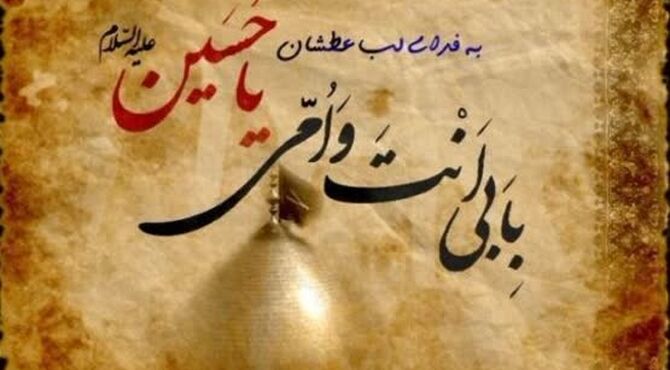 به فدای لب عطشان
یا حسین علیه السلام
بِاَبی اَنْتَ وَ اُمّی